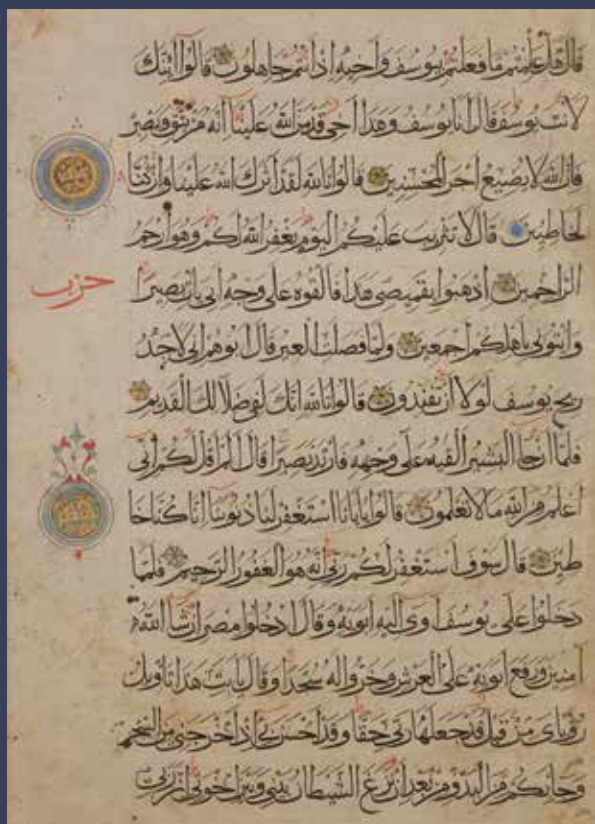 قال هل علمتم ما فعلتم بيوسف وأخيه إذ أنتم جاهلون قالوا أئنك
لأنت يوسف قال أنا يوسف وهذا أخي قد من الله علينا إنه من يتق ويصبر
فإن الله لا يضيع أجر المحسنين قالوا تالله لقد آثرك الله علينا وإن كنا
لخاطئين قال لا تثريب عليكم اليوم يغفر الله لكم وهو أرحم
الراحمين اذهبوا بقميصي هذا فألقوه على وجه أبي يأت بصيرا
حزب
وأتوني بأهلكم أجمعين ولما فصلت العير قال أبوهم إني لأجد
ريح يوسف لولا أن تفندون قالوا تالله إنك لفي ضلالك القديم
فلما أن جاء البشير ألقيه على وجهه فارتد بصيرا قال ألم أقل لكم إني
أعلم من الله ما لا تعلمون قالوا يا أبانا استغفر لنا ذنوبنا إنا كنا خا
طئين قال سوف أستغفر لكم ربي إنه هو الغفور الرحيم فلما
دخلوا على يوسف آوى إليه أبويه وقال ادخلوا مصر إن شاء الله
آمنين ورفع أبويه على العرش وخروا له سجدا وقال يا أبت هذا تأويل
رؤياي من قبل قد جعلها ربي حقا وقد أحسن بي إذ أخرجني من السجن
وجاء بكم من البدو من بعد أن نزغ الشيطان بيني وبين إخوتي إن ربي